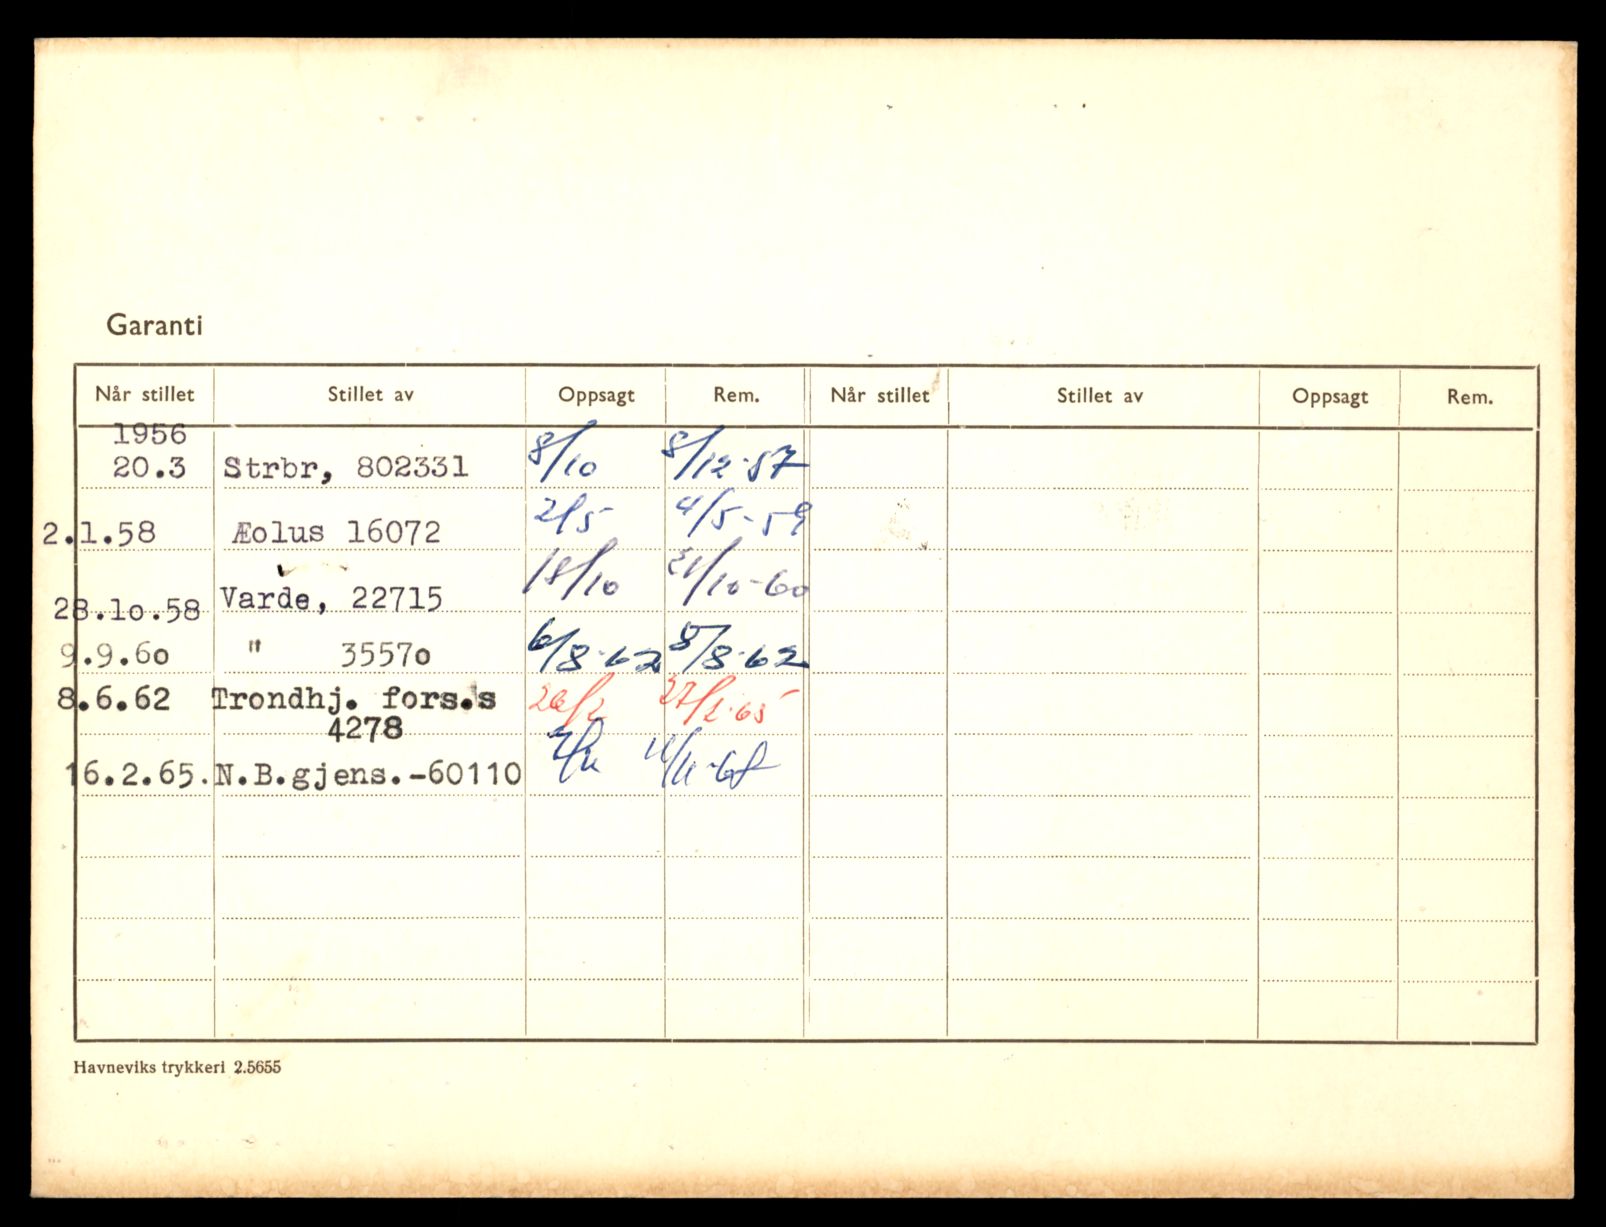 Garanti
Når stillet Stillet av Oppsagt Rem. Når stillet Stillet av Oppsagt Rem.
1956
20.3 Strbr, 802331 8/10 8/12-57
2.1.58 Æolus 16072 2/5 4/5-59
28.1o.58 Varde, 22715 18/10 /10-60
9.9.6o " 3557o 6/8-62 8/8-62
8.6.62 Trondhj. fors.s 26/2 27/2-65
4278
16.2.65. N.B.gjens.-60110
Havneviks trykkeri 2.5655